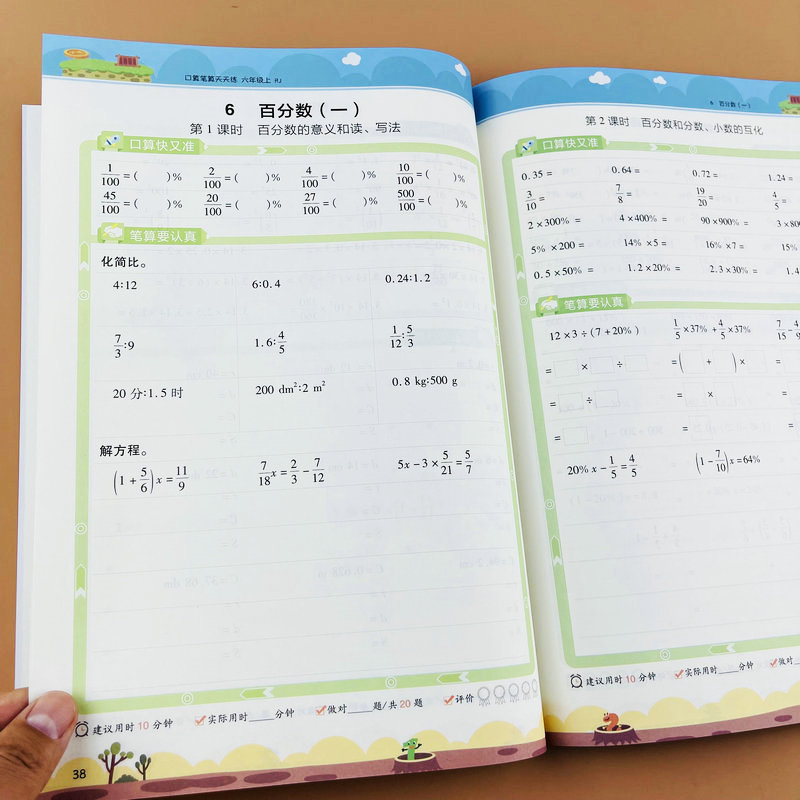 口算笔算天天练 六年级上 RJ
6 百分数(一)
第1课时 百分数的意义和读、写法
口算快又准
1/100=( )% 2/100=( )% 4/100=( )% 10/100=( )%
45/100=( )% 20/100=( )% 27/100=( )% 500/100=( )%
笔算要认真
化简比。
4:12 6:0.4 0.24:1.2
7/3:9 1.6:4/5 1/12:5/3
20分:1.5时 200 dm²:2 m² 0.8 kg:500 g
解方程。
(1+5/6)x=11/9 7/18x=2/3-7/12 5x-3×5/21=5/7
建议用时10分钟 实际用时____分钟 做对____题/共20题 评价
38
6 百分数(一)
第2课时 百分数和分数、小数的互化
口算快又准
0.35= 0.64= 0.72= 1.24=
3/10= 7/8= 19/20= 4/5=
2×300%= 4×400%= 90×900%= 3×80
5%×200= 14%×5= 16%×7= 15%
0.5×50%= 1.2×20%= 2.3×30%= 1.4
笔算要认真
12×3÷(7+20%) 1/5×37%+4/5×37% 7/15-4/9
= × ÷ =( + )× =
= ÷ = × =
= = =
20%x-1/5=4/5 (1-7/10)x=64%
建议用时10分钟 实际用时____分钟 做对